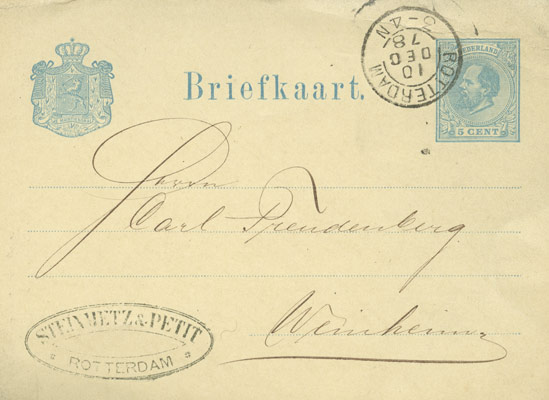 Briefkaart.
ROTTERDAM
10
DEC
78
3-4N
NEDERLAND
5 CENT
Herrn
Carl Freudenberg
Weinheim
STEINMETZ & PETIT
ROTTERDAM